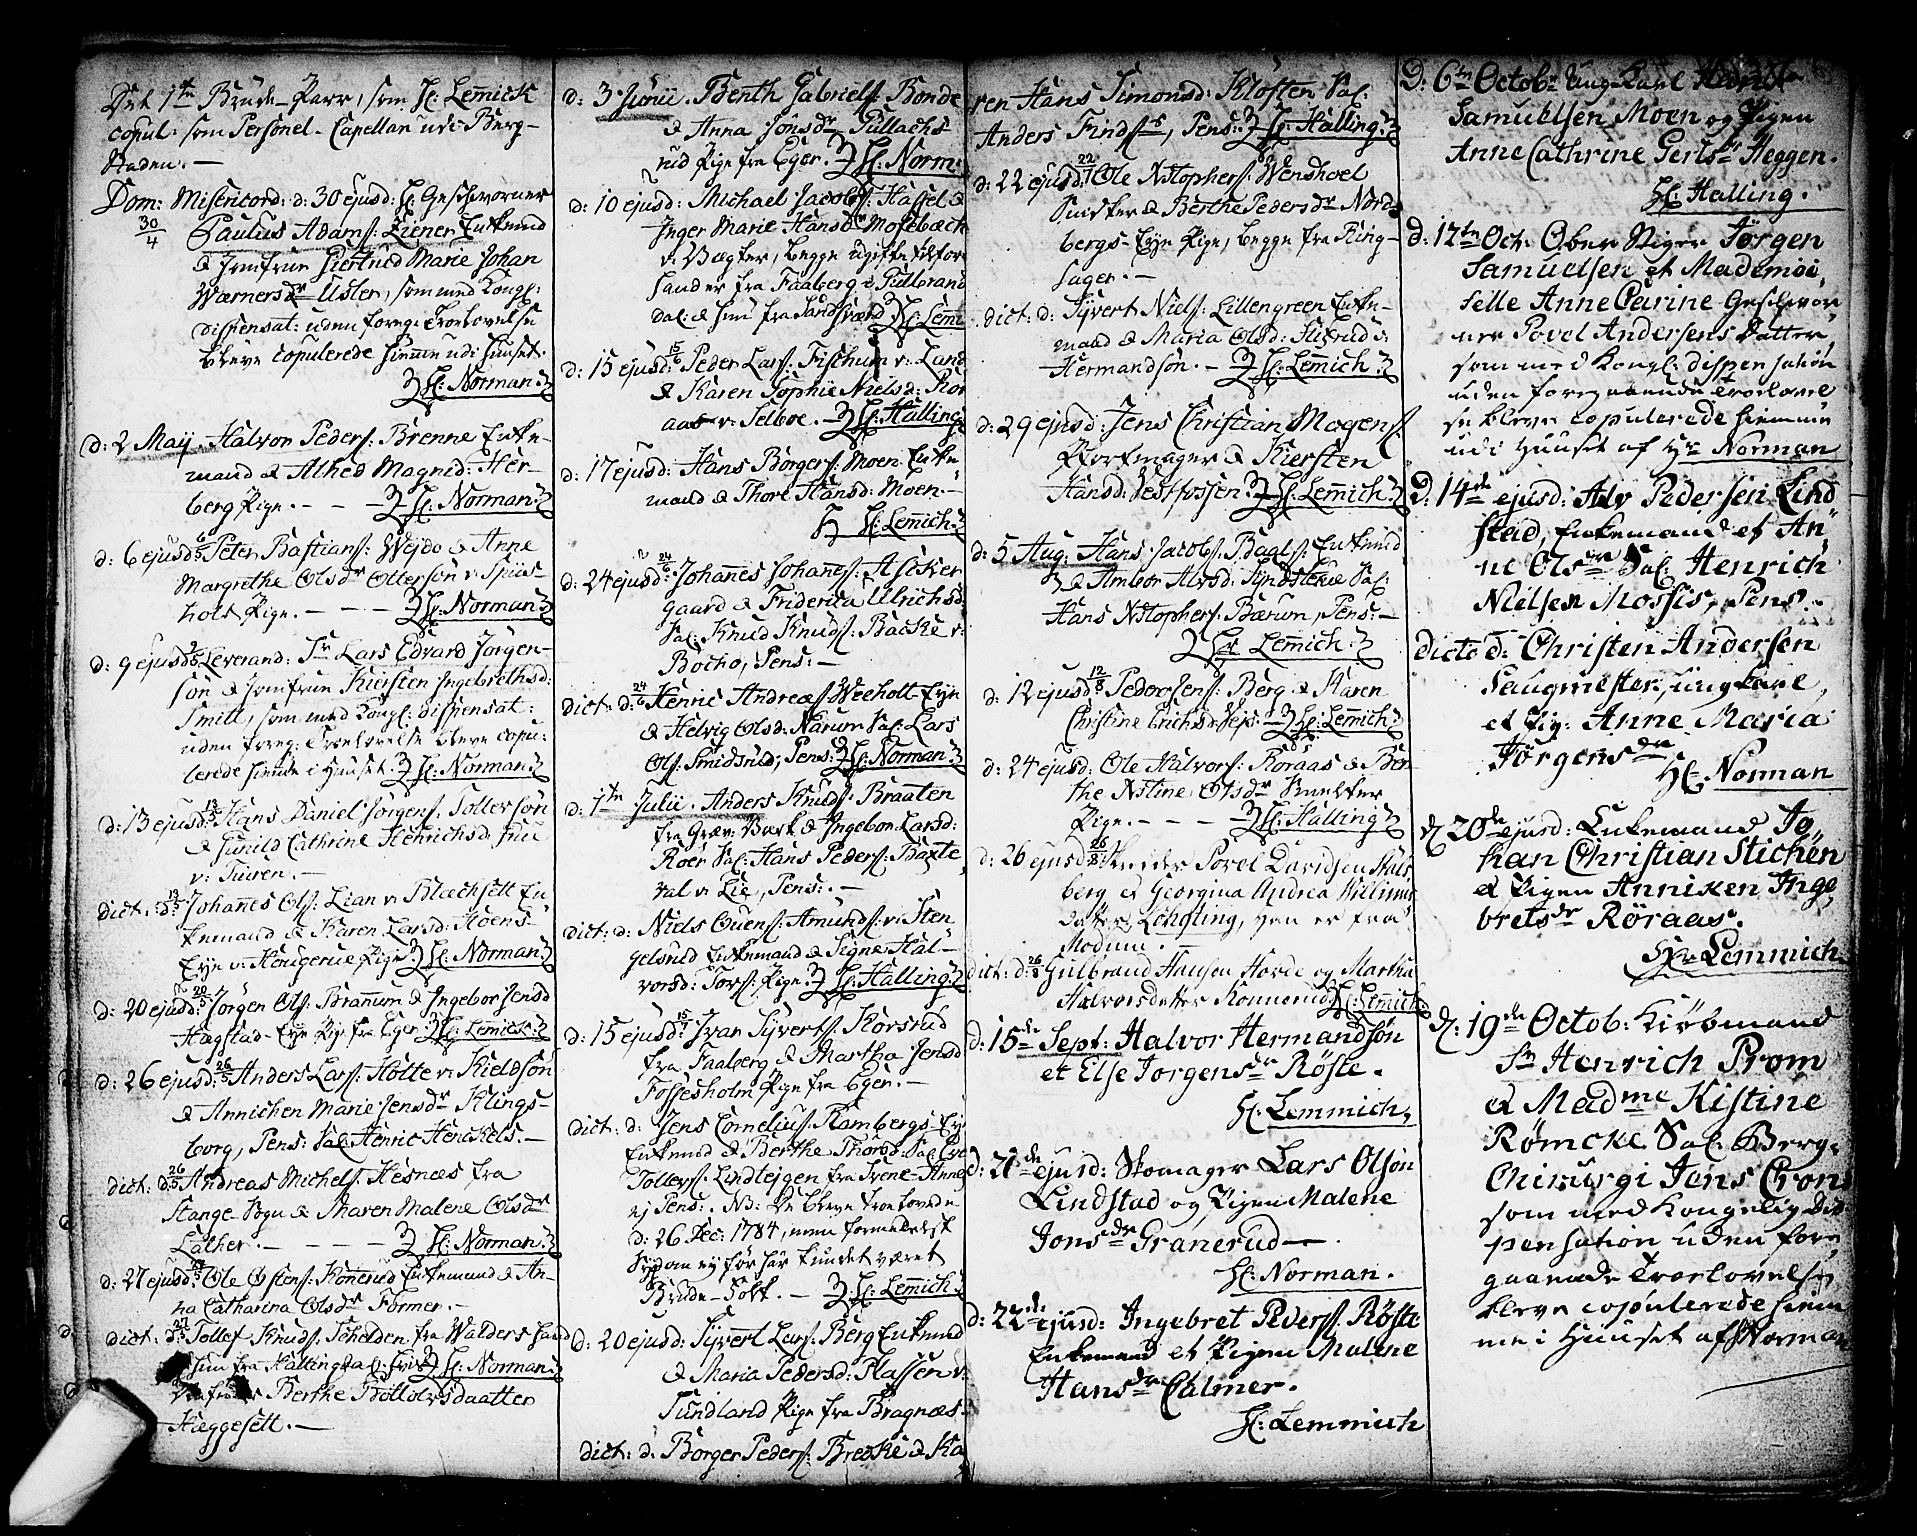 Det 1te Brude-Parr, som H: Lem̄ich
copul: som Personel-Capellan udi Berg-
staden. —
Dom: Misericord: d: 30 ejusd: H: Geschworner
30/4 Paulus Adams: Ziener Enkemd
& Jomfrue Giertrud Marie Johan
Wærnersdr Usler, som med Kongl:
dispensat: uden foreg: Troelovelse
bleve copulerede hiem̄e udi Huuset.
H: Norman
d: 2 Maij. Halvor Peders: Brenne Enke-
mand & Alhed Magned: Her-
berg Pige. — — H: Norman
d: 6 ejusd: Peter Bastians: Wejdo & Anne
Margrethe Olsdr Ottersøn v: Spiis-
hols Pige. — — — H: Norman
d: 9 ejusd: Leverand: Sr Lars Edvard Jørgen-
søn & Jomfrue Kiersten Ingebrethsd:
Smitt, som med Kongl: dispensat:
uden foreg: Troelovelse bleve copu-
lerede hiem̄e i Huuset. H: Norman
d: 13 ejusd: 13/5 Hans Daniel Jørgens: Tollersøn
& Gunild Cathrine Henrichsd:
v: Tuien. —
dict: d: 13/5 Johannes Ols: Lian v: Blechsett En-
kemand & Karen Larsd: Hoens-
Eye v: Hougerue Pige H: Norman
d: 20 ejusd: 20/5 Jørgen Ols: Branum & Ingebor Jensd
Hægstad-Eye Pige fra Eger H: Lem̄ich
d: 26 ejusd: 26/5 Anders Lars: Holte v: Kieldsøn
& Annichen Marie Jensdr Klings-
borg, Pens: Sal: Henric Henckels. —
dict: d: 26/5 Andreas Michels: Hesnæs fra
Stange-Sogn & Maren Malene Olsdr
Lather. — — — — H: Norman
d: 27 ejusd: Ole Østens: Konerud Enkemand & An-
na Catharina Olsdr Former. —
dict: d: 27/5 Tollef Knuds: Scholden fra Walders
& hun fra Hallingdal H: Norman
Berthe Bottolvsdaatter
Hæggesett. —
d: 3 Junii. Benth Gabriels: Bonde
& Anna Jonsdr Gullachs
rud Pige fra Eger. H: Norm:
d: 10 ejusd: Michael Jacobs: Hassel &
Inger Marie Hansdr Mosebæch
v: Vægter, begge ugifte tilforn
hand er fra Faaberg i Gulbrand
dal: & hun fra Sandsværd H: Lem̄
d: 15 ejusd: 15/6 Peder Lars: Fischum v: Land
& Karen Sophie Nielsd: Rør
aas v: Selboe. H: Halling
d: 17 ejusd: Hans Borgers: Moen Enke-
mand & Thore Hansd: Moen. —
H: Lem̄ich
d: 24 ejusd: 24/6 Johannes Johanes: Ascker
gaard & Friderica Ulrichsd
Sal: Knud Knuds: Backe v:
Bocho, Pens: —
dict: d: 24/6 Henric Andreas Weeholt-Eye
& Helvig Olsd: Narum Sal: Lars
Ols: Smidsrud, Pens: H: Norman
d: 1te Julii. Anders Knuds: Braaten
fra Grav: Værk & Ingebor Larsd:
Roer Sal: Hans Peders: Baxte
val v: Lie, Pens: —
dict: d: Niels Ouens: Amunds: v: Sten
gelsrud Enkemand & Signe Hal-
vorsd: Tors: Pige. H: Halling
d: 15 ejusd: 15/7 Ivar Syverts: Korsrud
fra Faaberg & Martha Jensd
Fossesholm Pige fra Eger. —
dict: d: Jens Cornelius Rambergs-Ey
Enkemd & Berthe Thorsd Sal: Ove
Tollevs: Lindtejgen fra Svene-Annex
ej Pens:. NB: De bleve troelovede
d: 26 Dec: 1784, men formedelst
Sygdom ey før har kundet været
Brude-Folk. — H: Lem̄ich
d: 20 ejusd: Syvert Lars: Berg Enkemd
& Maria Pedersd: Klassen v:
Sundland Pige fra Bragnæs.
dict: d: Borger Peders: Brecke & Ka
ren Hans Simonsd: Klosten Sal:
Anders Finds:, Pens: H: Halling
d: 22 ejusd: 22/7 Ole Xstophers: Wenshoel
Snidker & Berthe Pedersdr Nord-
bergs-Eye Pige, begge fra Ring-
sager. —
dict: d: Syvert Niels: Lillengreen Enke-
mand & Maria Olsd: Stuerud v:
Hermandsøn. — H: Lem̄ich
d: 29 ejusd: Jens Christian Mogens:
Pfortmager & Kiersten
Hansd: Vestfossen H: Lem̄ich
d: 5 Aug: Hans Jacobs: Bagls: Enkemd
& Ambor Alvsd: Syndsteue Sal:
Hans Xstophers: Bærum, Pens: —
Hr Lem̄ich
d: 12 ejusd: 12/8 Peder Jens: Berg & Karen
Christine Erichsd: Vejs: H: Lem̄ich
d: 24 ejusd: Ole Halvors: Roraas & Ber-
the Xstine Olsdr Smelter
Pige. — — — H: Halling
d: 26 ejusd: 26/8 Skreder Povel Davidsen Kals
berg et Georgina Andrea Willums
datter Lehesting, hun er fra
Modum. —
dict: d: 26/8 Gulbrand Hansen Horde og Martha
Halvorsdatter Konnerud H: Lem̄ich
d: 15de Sept: Halvor Hermandsøn
et Else Jorgensdr Røste.
H: Lemmich
d: 21de ejusd: Skomager Lars Olsøn
Lindstad og Pigen Malene
Jonsdr Granerud —
H: Norman.
d: 22de ejusd: Ingebret Peders: Røste
Enkemand et Pigen Malene
Hansdr Calmer.
H: Lemmich
D: 6te Octob: Ung Karl Hans
Samuelsen Moen og Pigen
Anne Cathrine Gertsdr Heggen.
H: Halling.
d: 12te Oct: Ober Stiger Jørgen
Samuelsen et Mademoi,
selle Anne Carine Geschwor
ner Povel Andersens Datter,
som med Kongl: dispensation
uden foregaaende Troelovel
se bleve copulerede hiemme
udi Huuset af Hr Norman
d: 14de ejusd: Alv Pedersen Lind
stad, Enkemand et An
ne Olsdr Sal: Henrich
Nielsen Mossis, Pens:
Dicto d: Christen Andersen
Saugmester, ung karl,
et Pig: Anne Maria
Jørgensdr H: Norman
d: 20de ejusd: Enkemand Jo
han Christian Stichen
et Pigen Annixen Inge
bretsdr Røraas.
Hr Lemmich
d: 19de Octob: Kiøbmand
Sr Henrich Prom
et Madme Kistine
Rømcke Sal: Berg
Chirurgi Jens Crons
som med Kongelig Dis
pensation uden fore
gaaende Troelovelse
bleve copulerede hiem
me i Huuset af Norman